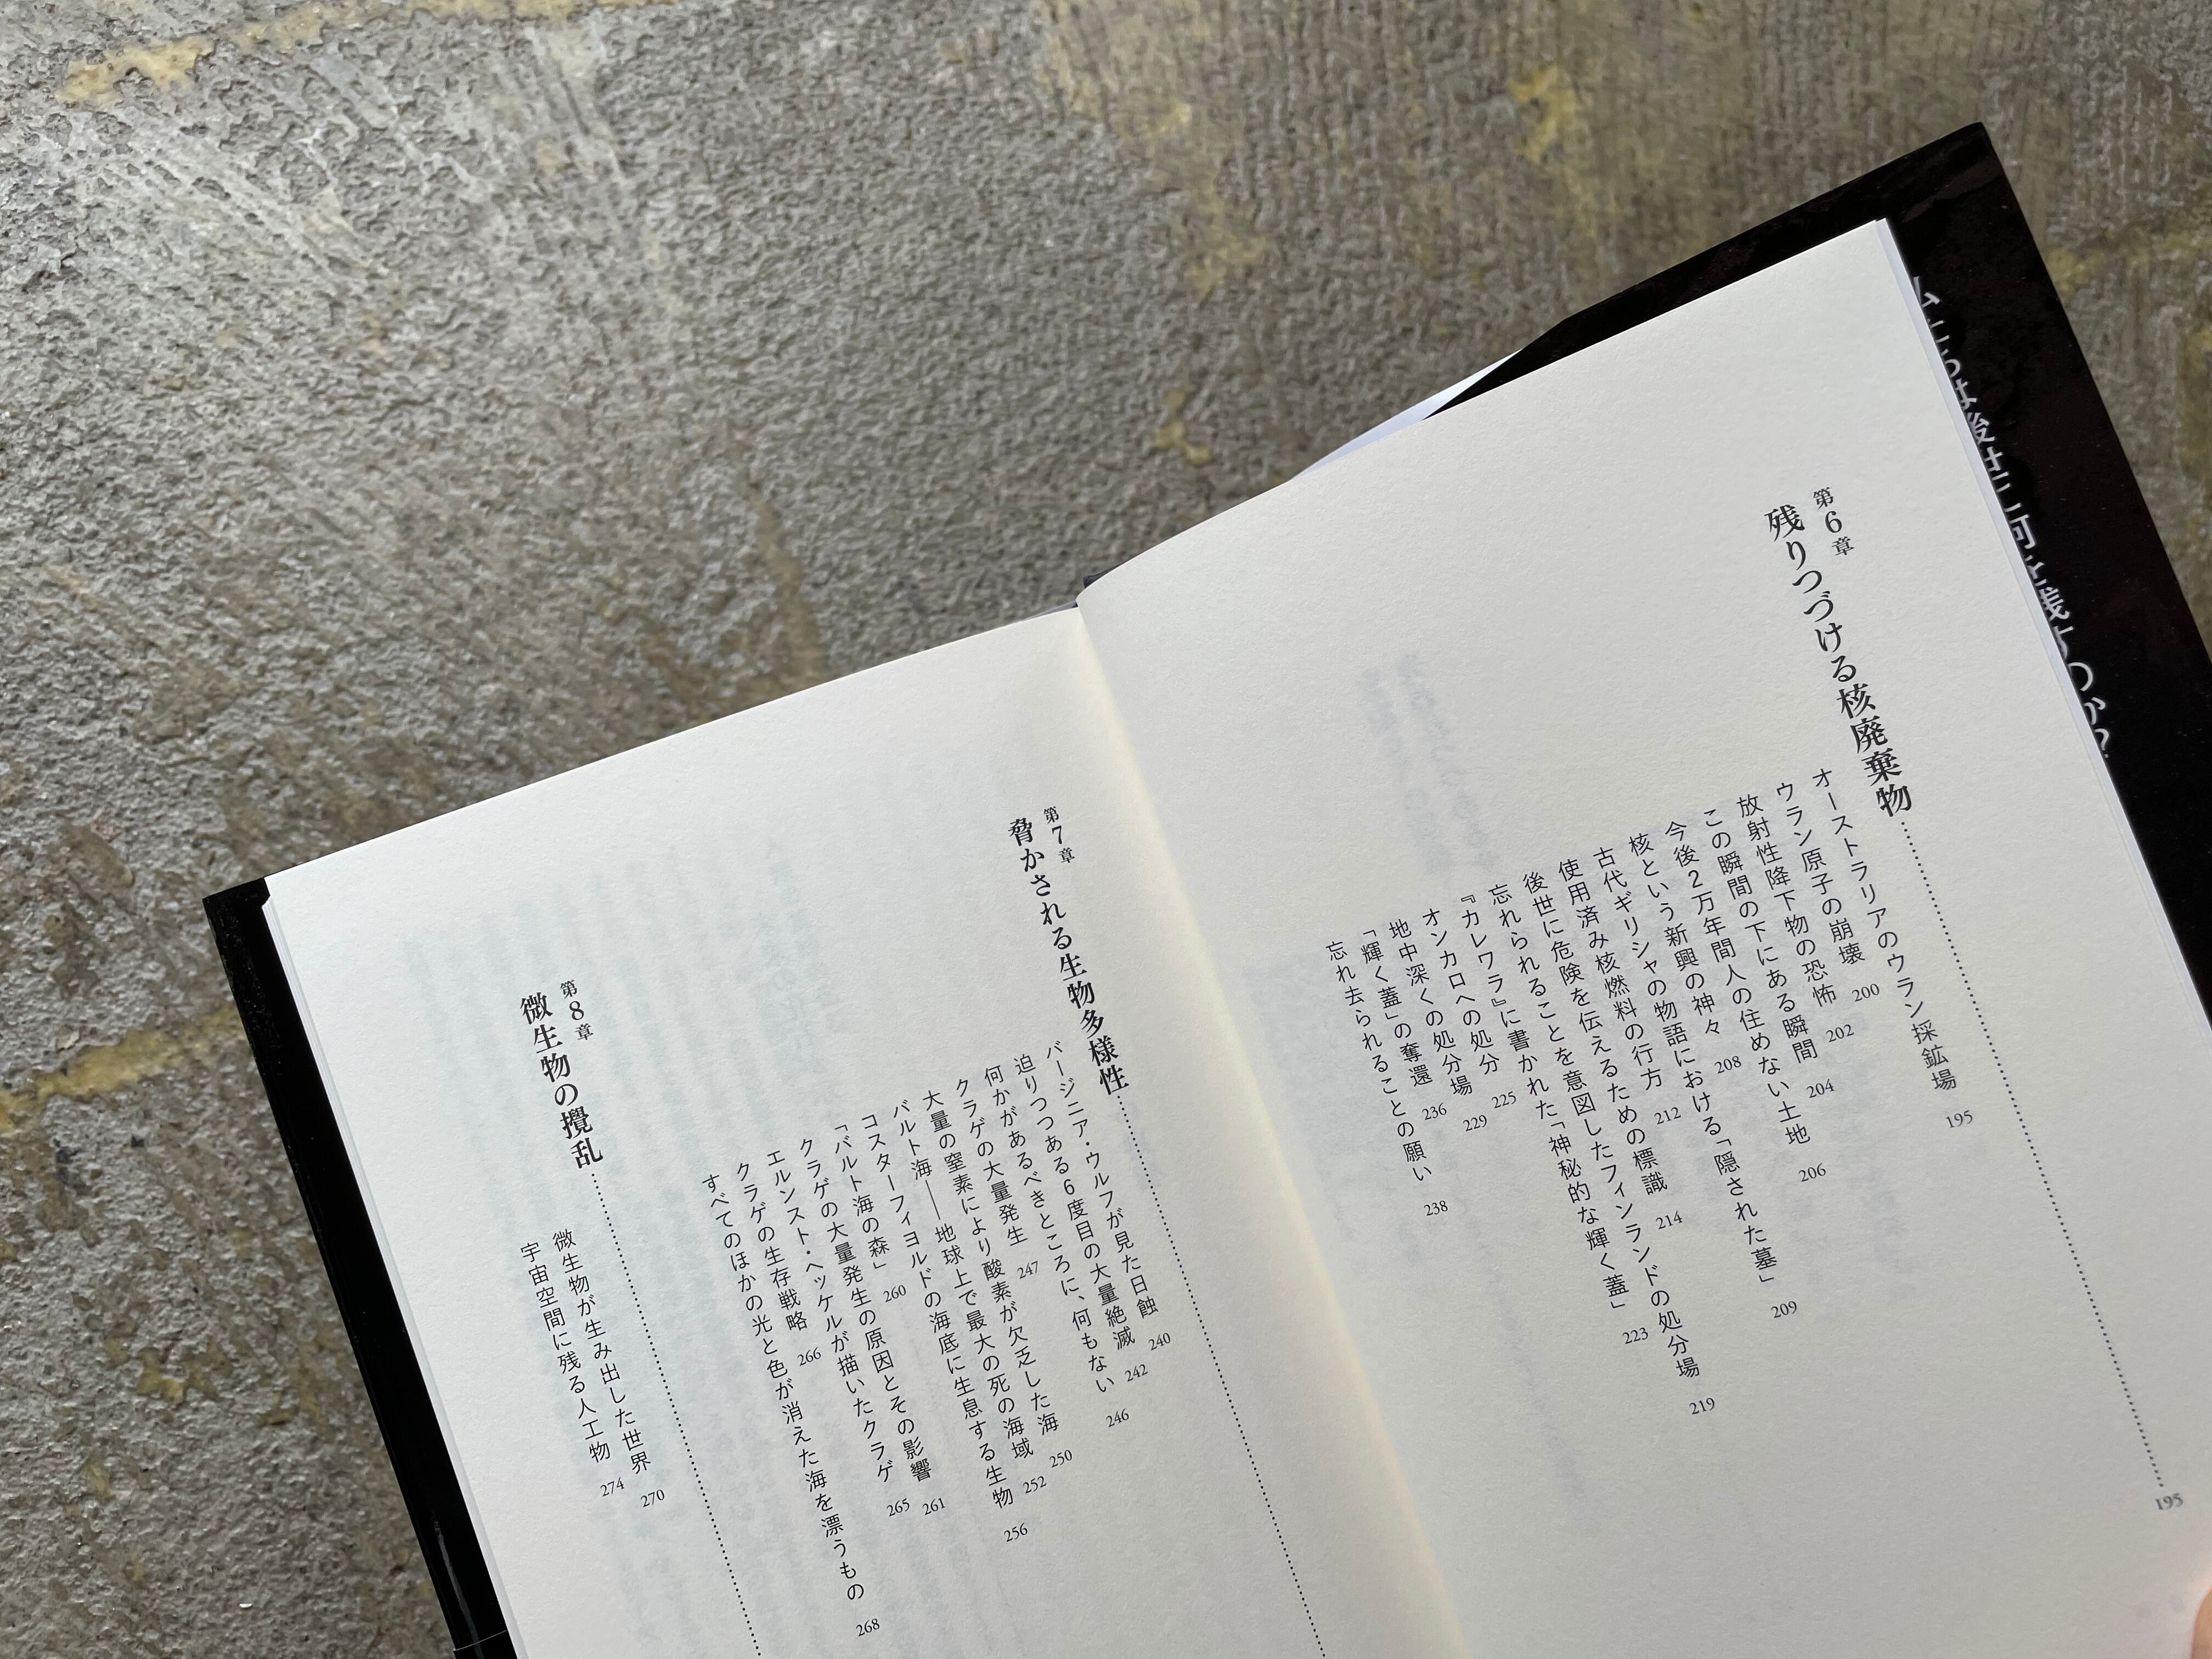 私たちは後世に何を残すのか?
第6章
残りつづける核廃棄物……195
オーストラリアのウラン採鉱場 195
ウラン原子の崩壊 200
放射性降下物の恐怖 202
この瞬間の下にある瞬間 204
今後2万年間人の住めない土地 206
核という新興の神々 208
古代ギリシャの物語における「隠された墓」 209
使用済み核燃料の行方 212
後世に危険を伝えるための標識 214
忘れられることを意図したフィンランドの処分場 219
『カレワラ』に書かれた「神秘的な輝く蓋」 223
オンカロへの処分 225
地中深くの処分場 229
「輝く蓋」の奪還 236
忘れ去られることの願い 238
第7章
脅かされる生物多様性……
バージニア・ウルフが見た日蝕 240
迫りつつある6度目の大量絶滅 242
何かがあるべきところに、何もない 246
クラゲの大量発生 247
大量の窒素により酸素が欠乏した海 250
バルト海――地球上で最大の死の海域 252
コスターフィヨルドの海底に生息する生物 256
「バルト海の森」 260
クラゲの大量発生の原因とその影響 261
エルンスト・ヘッケルが描いたクラゲ 265
クラゲの生存戦略 266
すべてのほかの光と色が消えた海を漂うもの 268
第8章
微生物の攪乱……
微生物が生み出した世界 270
宇宙空間に残る人工物 274